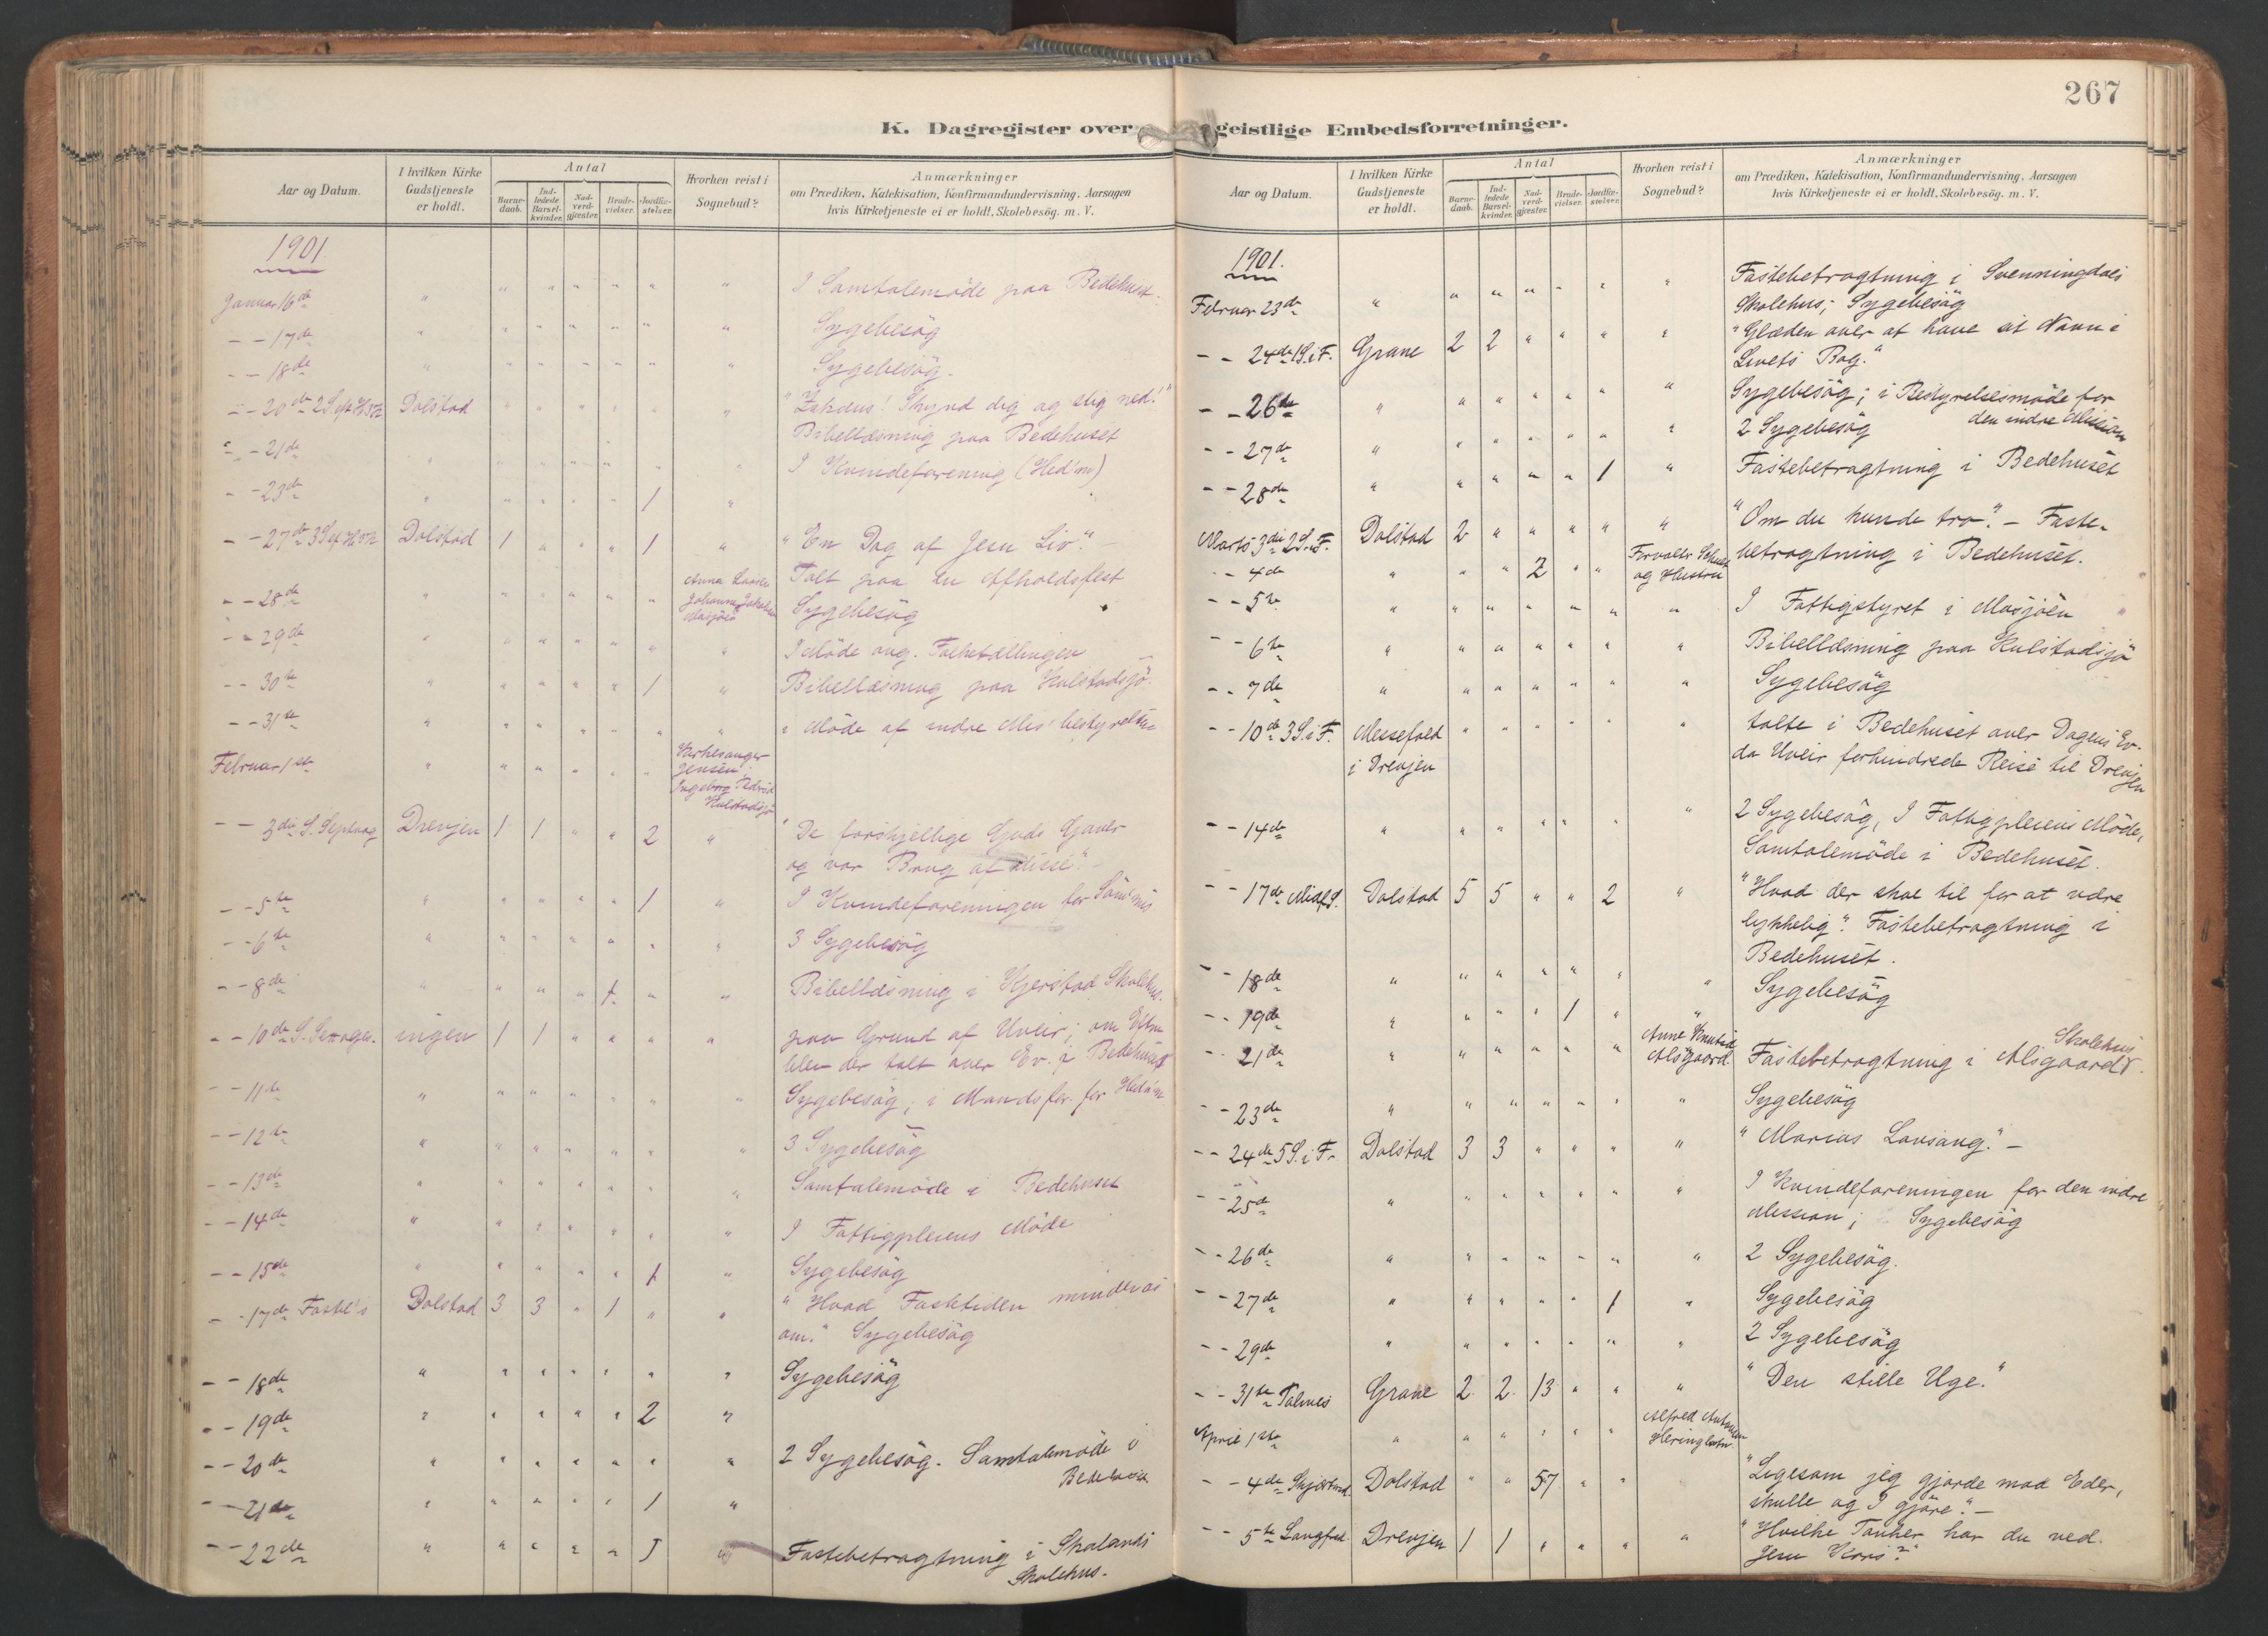 267
K. Dagregister over geistlige Embedsforretninger.
Aar og Datum.
I hvilken Kirke Gudstjeneste er holdt.
Antal
Barne-daab.
Ind-ledede Barsel-kvinder.
Nad-verd-gjæster.
Brude-vielser.
Jordfæ-stelser.
Hvorhen reist i Sognebud?
Anmærkninger
om Prædiken, Katekisation, Konfirmandundervisning. Aarsagen
hvis Kirketjeneste ei er holdt, Skolebesøg. m. V.
1901.
Januar 16de " " " " " " " I Samtalemöde paa Bedehuset.
- - 17de " " " " " " " Sygebesög
- - 18de " " " " " " " Sygebesög.
- - 20de 2 S eft H3K Dolstad " " " " " " "Zakæus! Skynd dig og stig ned!"
Bibellæsning paa Bedehuset
- - 21de " " " " " " " I Kvindeforening (Hed'm)
- - 23de " " " " " 1 "
- - 27de 3 S ef H3K Dolstad 1 " " " 1 " "En Dag af Jesu Liv." -
Talt paa en Afholdsfest
- - 28de " " " " " " Anna Larsen Johanna Jakobsen Mosjöen Sygebesög
- - 29de " " " " " " " I Möde ang. Folketællingen
- - 30te " " " " " 1 " Bibellæsning paa Kulstadsjö.
- - 31te " " " " " " " i Möde af indre Mis' bestyrelse
Februar 1ste " " " " " " Kirkesanger Jensen; Ingeborg Pedersd Kulstadsjö
- - 3die S. Septuag Drevjen 1 1 " " 2 " "De forskjellige Guds Gaver
og vor Brug af disse." -
- - 5te " " " " " 1 " I Kvindeforeningen for Söm'mis
- - 6te " " " " " " " 3 Sygebesög
- - 8de " " " " 1. " " Bibellæsning i Kjerstad Skolehus.
- - 10de S. Sexages. ingen 1 1 " " " " paa Grund af Uveir; om Eftm
blev der talt over Ev. i Bedehuset
- - 11te " " " " " " " Sygebesög; i Mandsfor. for Hed'm.
- - 12te " " " " " " " 3 Sygebesög
- - 13de " " " " " " " Samtalemöde i Bedehuset
- - 14de " " " " " " " I Fattigpleiens Möde
- - 15de " " " " " 1 " Sygebesög
- - 17de Fastel's Dolstad 3 3 " 1 " " "Hvad Fastetiden minder os
om." Sygebesög
- - 18de " " " " " " " Sygebesög
- - 19de " " " " " 2 "
- - 20de " " " " " " " 2 Sygebesög. Samtalemöde i
Bedehuset
- - 21de " " " " " 1 "
- - 22de " " " " " 1 " Fastebetragtning i Skalands
Skolehus.
1901.
Februar 23de " " " " " " " Fastebetragtning i Svenningdals
Skolehus; Sygebesög
- - 24de 1 S. i F. Grane 2 2 " " " " "Glæden over at have sit Navn i
Livets Bog."
- - 26de " " " " " " " Sygebesög; i Bestyrelsesmöde for
den indre Mission
- - 27de " " " " " " " 2 Sygebesög
- - 28de " " " " " 1 " Fastebetragtning i Bedehuset
Marts 3die 2 S. i F. Dolstad 2 " " " " " "Om du kunde tro." - Faste-
betragtning i Bedehuset.
- - 4de " " " 2 " " Forvalter og Hustru
- - 5te " " " " " " " I Fattigstyret i Mosjöen
- - 6te " " " " " " " Bibellæsning paa Kulstadsjö
- - 7de " " " " " " " Sygebesög
- - 10de 3 S. i F. Messefald i Drevjen " " " " " " talte i Bedehuset over Dagens Ev.
da Uveir forhindrede Reise til Drevjen
- - 14de " " " " " " " 2 Sygebesög, I Fattigpleiens Möde,
Samtalemöde i Bedehuset.
- - 17de Midf S. Dolstad 5 5 " " 2 " "Hvad der skal til for at være
lykkelig". Fastebetragtning i
Bedehuset.
- - 18de " " " " " " " Sygebesög
- - 19de " " " " 1 " "
- - 21de " " " " " " Anne Knutsd Alsgaard. Fastebetragtning i Alsgaard Skolehus.
- - 23de " " " " " " " Sygebesög
- - 24de 5 S. i F. Dolstad 3 3 " " " " "Marias Lovsang." -
- - 25de " " " " " " " I Kvindeforeningen for den indre
Mission; Sygebesög
- - 26de " " " " " " " 2 Sygebesög.
- - 27de " " " " " 1 " Sygebesög
- - 29de " " " " " " " 2 Sygebesög
- - 31te Palmes Grane 2. 2. 13 " " " "Den stille Uge."
April 1ste " " " " " " Alfred
- - 4de Skjærtorsd. Dolstad " " 57 " " "Ligesom jeg gjorde mod Eder,
skulle og I gjöre." -
- - 5te Langfred. Drevjen 1 1 " " " " "Hvilke Tanker har du ved
Jesu Kors?"